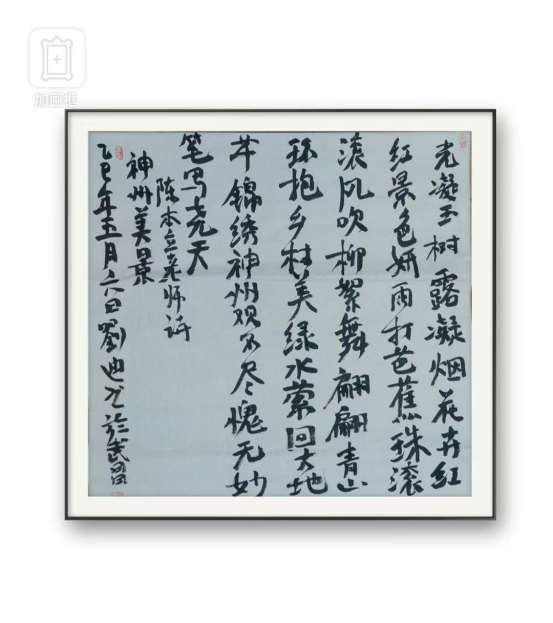 光凝玉树露凝烟花卉红
红景色妍雨打芭蕉珠滚
滚风吹柳絮舞翩翩青山
环抱乡村美绿水萦回大地
芊锦绣神州观不尽愧无妙
笔写尧天
陈本立老师诗
神州美景
乙巳年五月六日劉迪
加画框